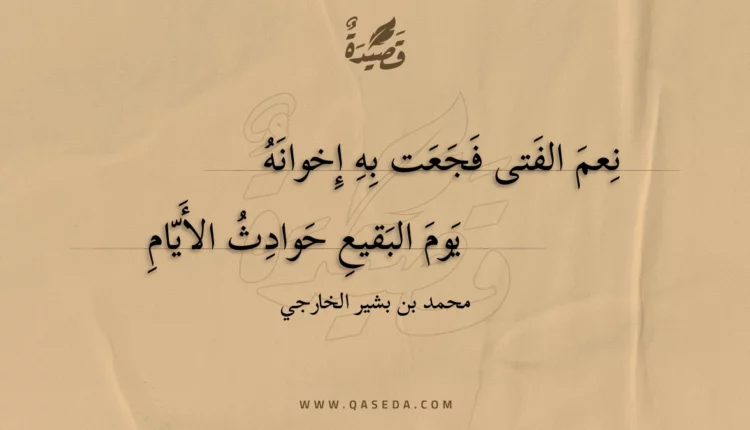 قَصِيدَةٌ
نِعمَ الفَتى فَجَعَت بِهِ إِخوانَهُ
يَومَ البَقيعِ حَوادِثُ الأَيّامِ
محمد بن بشير الخارجي
WWW.QASEDA.COM